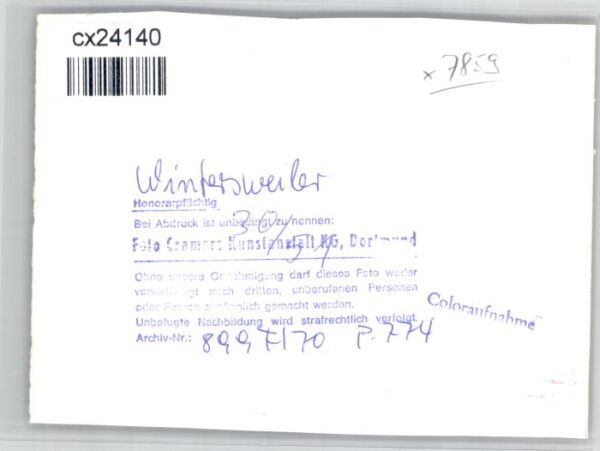 cx24140
x 7859
Wintersweiler
Honorarpflichtig
30/54
Bei Abdruck ist unbedingt zu nennen:
Foto Cramers Kunstanstalt KG, Dortmund
Ohne unsere Genehmigung darf dieses Foto weder
vervielfältigt noch dritten, unberufenen Personen
oder Firmen zugänglich gemacht werden.
Unbefugte Nachbildung wird strafrechtlich verfolgt.
Archiv-Nr.: 899 F/70 P. 774
Coloraufnahme